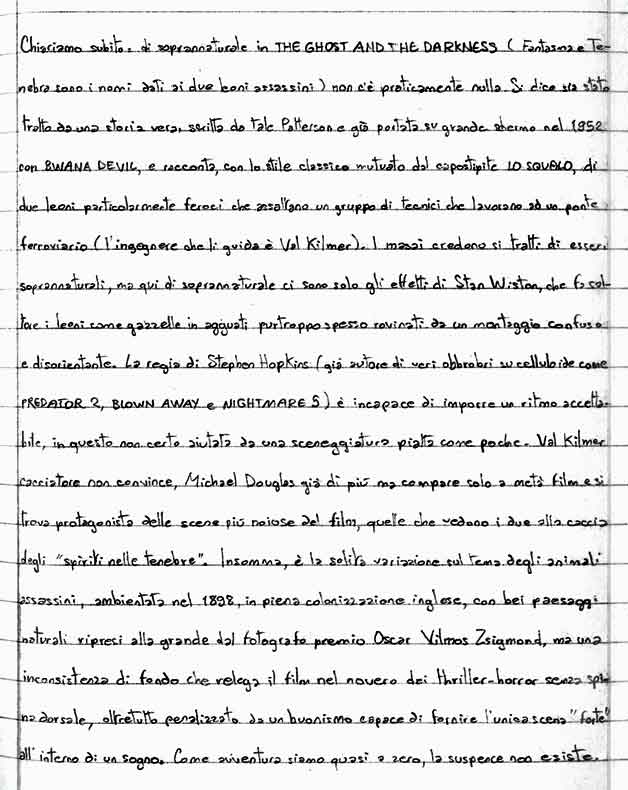 Chiariamo subito: di soprannaturale in THE GHOST AND THE DARKNESS ( Fantasma e Te-
nebra sono i nomi dati ai due leoni assassini ) non c'è praticamente nulla. Si dice sia stato
tratto da una storia vera, scritta da Tale Patterson e già portata su grande shermo nel 1952
con BWANA DEVIL, e racconta, con lo stile classico mutuato dal capostipite LO SQUALO, di
due leoni particolarmente feroci che assaltano un gruppo di tecnici che lavorano ad un ponte
ferroviario ( l'ingegnere che li guida è Val Kilmer ). I masai credono si tratti di esseri
soprannaturali, ma qui di soprannaturale ci sono solo gli effetti di Stan Wiston, che fa sal-
tare i leoni come gazzelle in agguati purtroppo spesso rovinati da un montaggio confuso
e disorientante. La regia di Stephen Hopkins ( già autore di veri obbrobri su celluloide come
PREDATOR 2, BLOWN AWAY e NIGHTMARE 5 ) è incapace di imporre un ritmo accetta-
bile, in questo non certo aiutata da una sceneggiatura piatta come poche. Val Kilmer
cacciatore non convince, Michael Douglas già di più ma compare solo a metà film e si
trova protagonista delle scene più noiose del film, quelle che vedono i due alla caccia
degli "spiriti nelle tenebre". Insomma, è la solita variazione sul tema degli animali
assassini, ambientata nel 1898, in piena colonizzazione inglese, con bei paesaggi
naturali ripresi alla grande dal fotografo premio Oscar Vilmos Zsigmond, ma una
inconsistenza di fondo che relega il film nel novero dei thriller-horror senza spi-
na dorsale, oltretutto penalizzato da un buonismo capace di fornire l'unica scena "forte"
all'interno di un sogno. Come avventura siamo quasi a zero, la suspence non esiste.